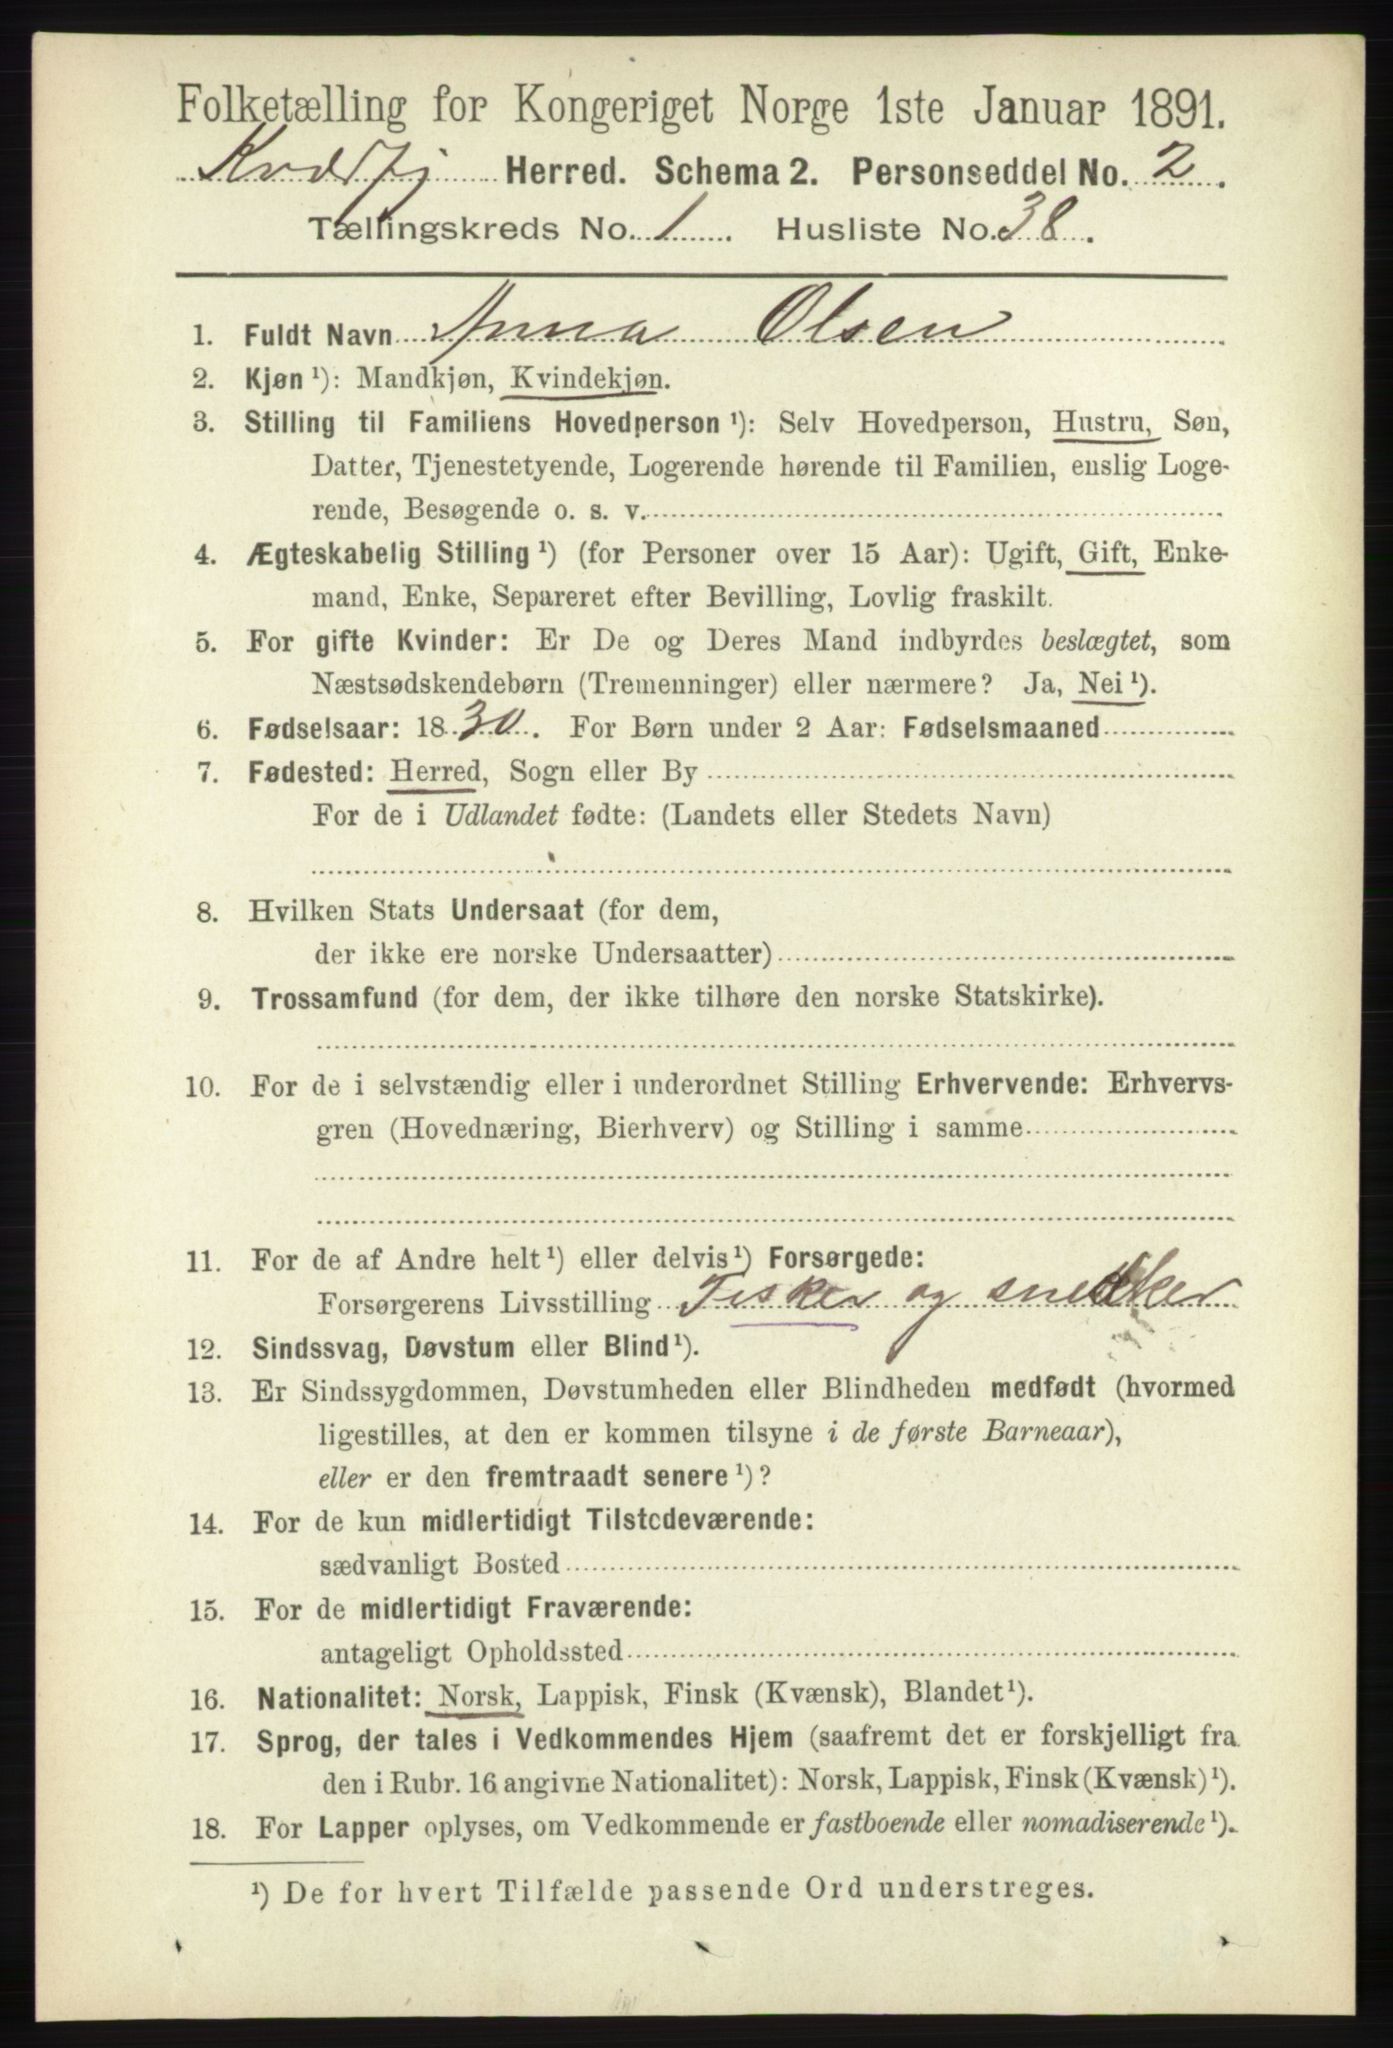 Folketælling for Kongeriget Norge 1ste Januar 1891.
Kvædfj Herred. Schema 2. Personseddel No. 2.
Tællingskreds No. 1. Husliste No. 38.
1. Fuldt Navn Anna Olsen
2. Kjøn ¹): Mandkjøn, Kvindekjøn.
3. Stilling til Familiens Hovedperson ¹): Selv Hovedperson, Hustru, Søn,
Datter, Tjenestetyende, Logerende hørende til Familien, enslig Loge-
rende, Besøgende o. s. v.
4. Ægteskabelig Stilling ¹) (for Personer over 15 Aar): Ugift, Gift, Enke-
mand, Enke, Separeret efter Bevilling, Lovlig fraskilt.
5. For gifte Kvinder: Er De og Deres Mand indbyrdes beslægtet, som
Næstsødskendebørn (Tremenninger) eller nærmere? Ja, Nei ¹).
6. Fødselsaar: 1830. For Børn under 2 Aar: Fødselsmaaned
7. Fødested: Herred, Sogn eller By
For de i Udlandet fødte: (Landets eller Stedets Navn)
8. Hvilken Stats Undersaat (for dem,
der ikke ere norske Undersaatter)
9. Trossamfund (for dem, der ikke tilhøre den norske Statskirke).
10. For de i selvstændig eller i underordnet Stilling Erhvervende: Erhvervs-
gren (Hovednæring, Bierhverv) og Stilling i samme
11. For de af Andre helt ¹) eller delvis ¹) Forsørgede:
Forsørgerens Livsstilling Fisker og snedker
12. Sindssvag, Døvstum eller Blind ¹).
13. Er Sindssygdommen, Døvstumheden eller Blindheden medfødt (hvormed
ligestilles, at den er kommen tilsyne i de første Barneaar),
eller er den fremtraadt senere ¹)?
14. For de kun midlertidigt Tilstedeværende:
sædvanligt Bosted
15. For de midlertidigt Fraværende:
antageligt Opholdssted
16. Nationalitet: Norsk, Lappisk, Finsk (Kvænsk), Blandet ¹).
17. Sprog, der tales i Vedkommendes Hjem (saafremt det er forskjelligt fra
den i Rubr. 16 angivne Nationalitet): Norsk, Lappisk, Finsk (Kvænsk) ¹).
18. For Lapper oplyses, om Vedkommende er fastboende eller nomadiserende ¹).
¹) De for hvert Tilfælde passende Ord understreges.